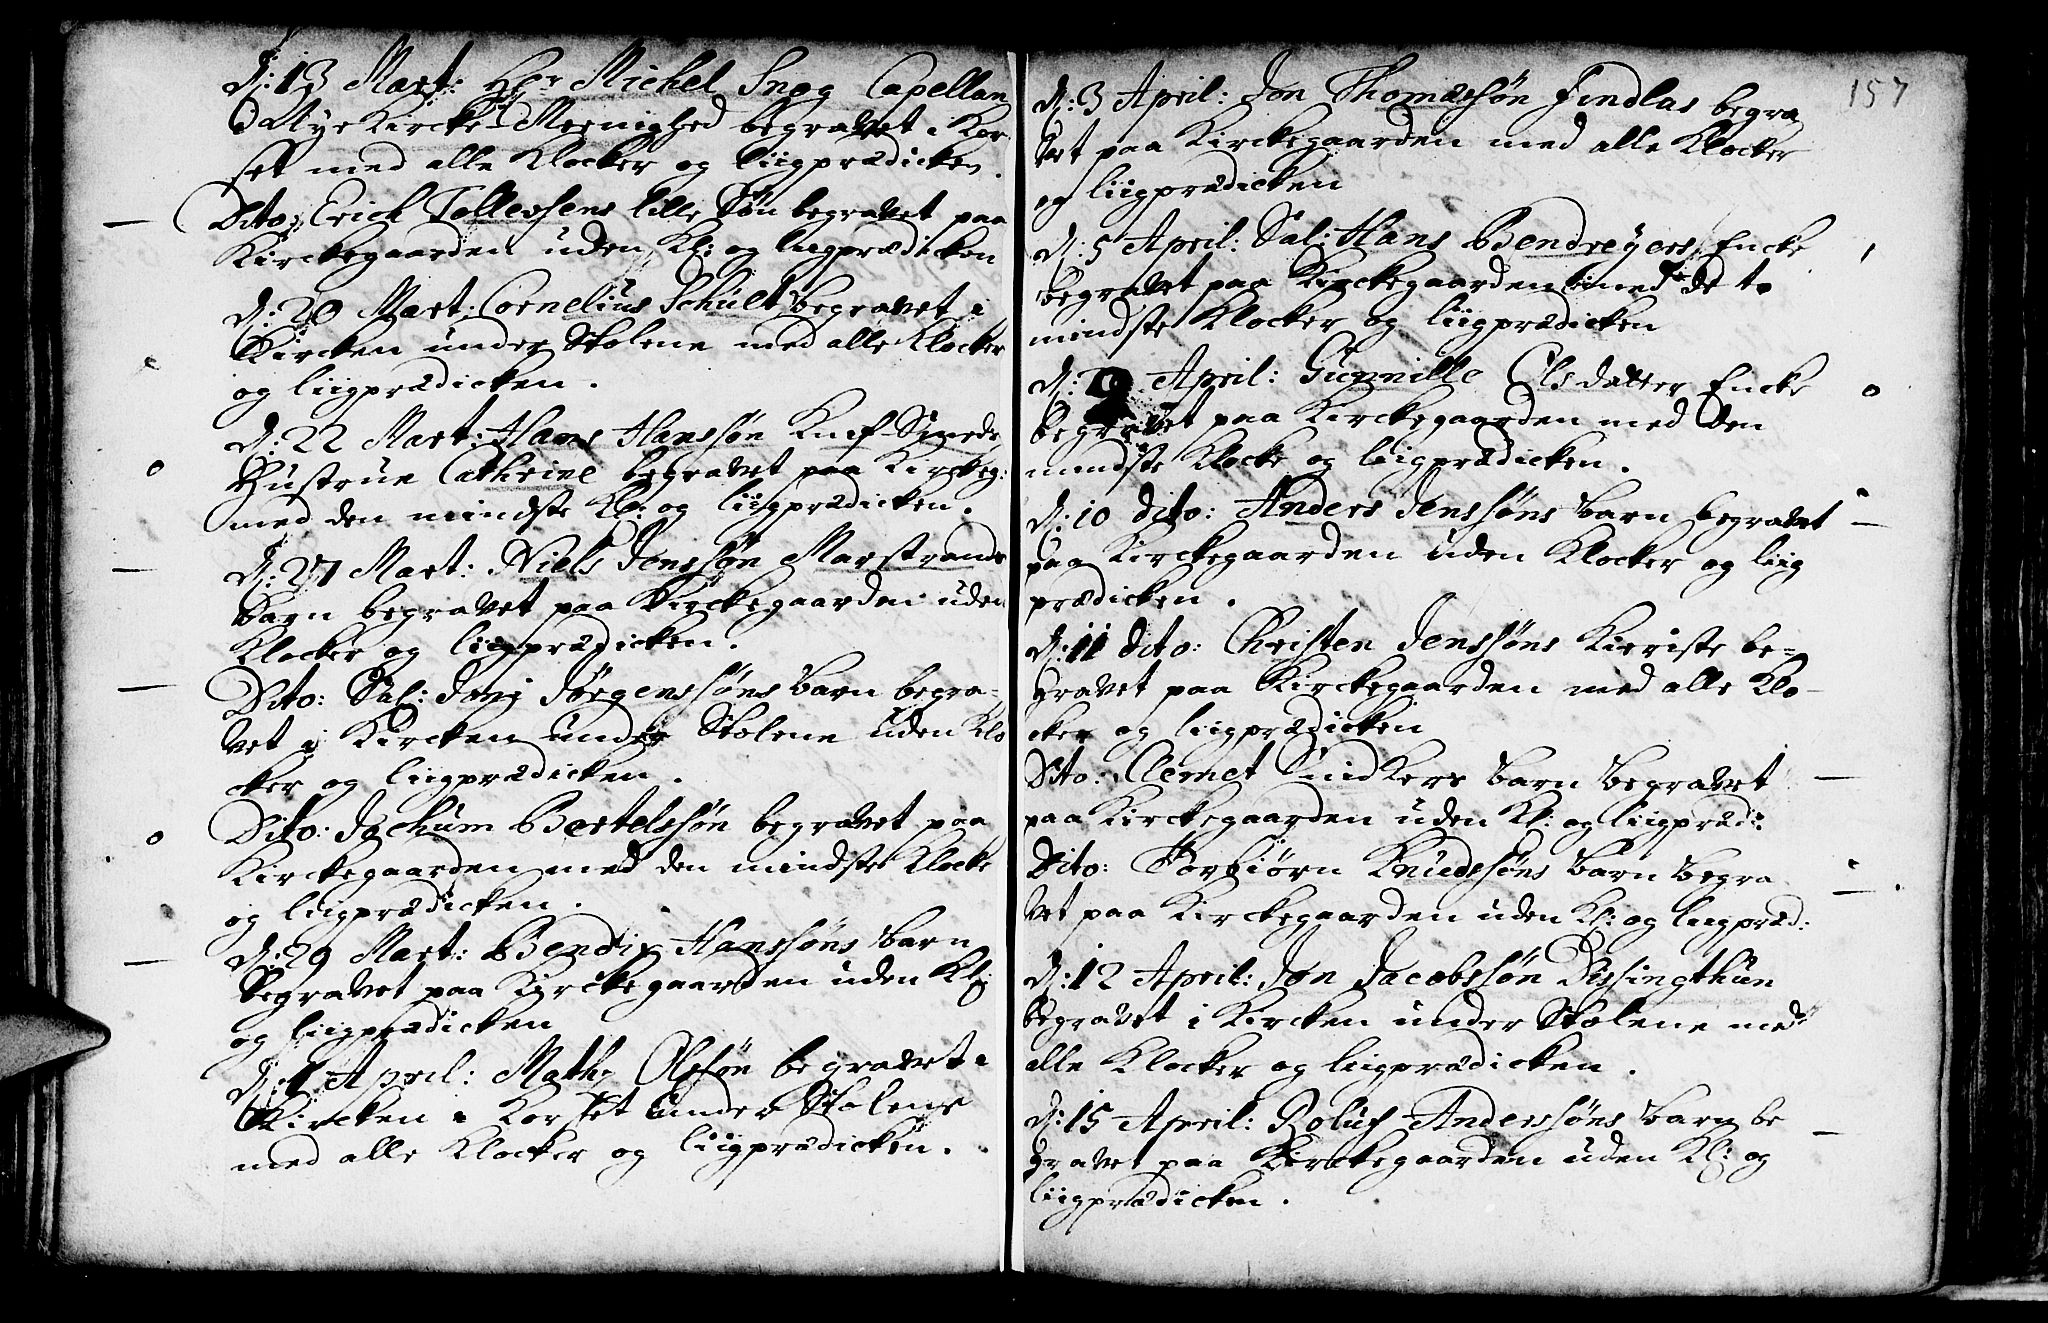 D: 13 Mart: Hr Michel Snog Capellan
i Nye Kircke Meenighed begravet i Kor
set med alle Klocker og liigprædicken.
Dito: Erich Tollevsens lille Søn begravet paa
Kirckegaarden uden Kl: og liigprædicken
D: 20 Mart: Cornelius Schult begravet i
Kircken under Stolene med alle Klocker
og liigprædicken.
D: 22 Mart: Hans Hanssøn Knif-Smeds
Hustrue Cathrine begravet paa Kirckeg:
med den mindste Kl: og liigprædicken.
D: 27 Mart: Niels Jenssøn Marstrands
Barn begravet paa Kirckegaarden uden
Klocker og liigprædicken.
Dito: Sal: Jørgenssøns Barn begra-
vet i Kircken under Stolene uden Klo
cker og liigprædicken.
Dito: Jochum Bertelssøn begravet paa
Kirckegaarden med den mindste Klocke
og liigprædicken.
D: 29 Mart: Bendix Hanssøns Barn
begravet paa Kirckegaarden uden Kl:
og liigprædicken
D: 1 April: Math: Olssøn begravet i
Kircken i Korset under Stolene
med alle Klocker og liigprædicken.
157
D: 3 April: Jon Thomæssøn Findlas begra
vet paa Kirckegaarden med alle Klocker
og liigprædicken
D: 5 April: Sal: Hans Bendreyers Encke
begravet paa Kirckegaarden med de to
mindste Klocker og liigprædicken
D: April: Gunnille Olsdatter Encke
begravet paa Kirckegaarden med den
mindste Klocke og liigprædicken.
D: 10 Dito: Anders Jenssøns Barn begravet
paa Kirckegaarden uden Klocker og liig
prædicken.
D: 11 Dito: Christen Jenssøns Kieriste be-
gravet paa Kirckegaarden med alle Klo-
cker og liigprædicken
Dito: Clemet Snidkers Barn begravet
paa Kirckegaarden uden Kl: og liigprædi:
Dito: Torbiørn Knudssøns Barn begra
vet paa Kirckegaarden uden Kl: og liigpræd:
D: 12 April: Jon Jacobssøn Dissingthun
begravet i Kircken under Stolene med
alle Klocker og liigprædicken.
D: 15 April: Roluf Anderssøns Barn be
gravet paa Kirckegaarden uden Kl: og
liigprædicken.